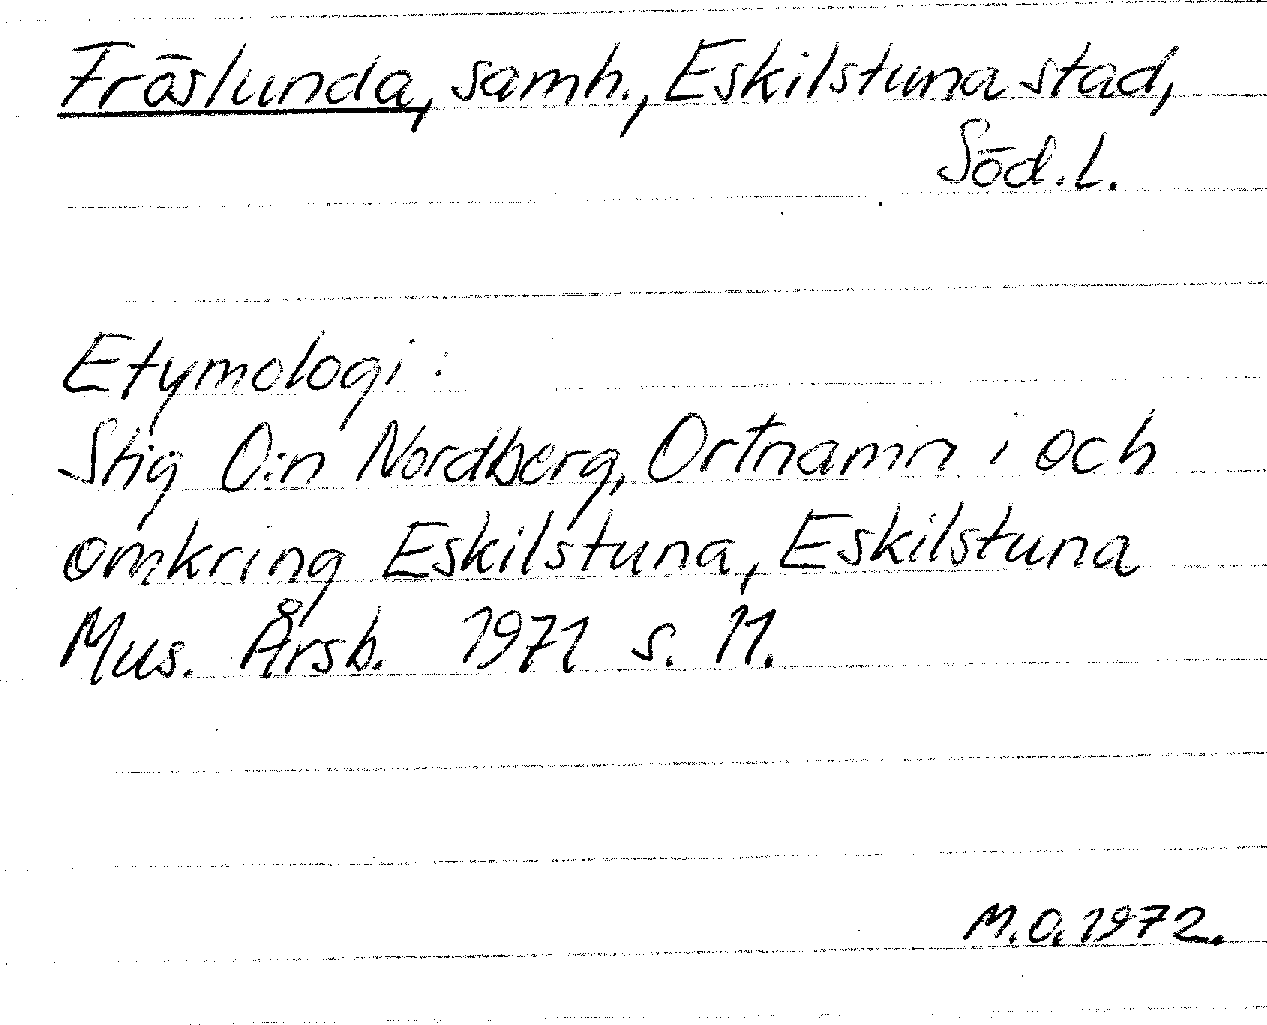 Fröslunda, samh., Eskilstuna stad,
Söd.l.
Etymologi:
Stig O:n Nordberg, Ortnamn i och
omkring Eskilstuna, Eskilstuna
Mus. Årsb. 1971 s. 11.
M.O. 1972.